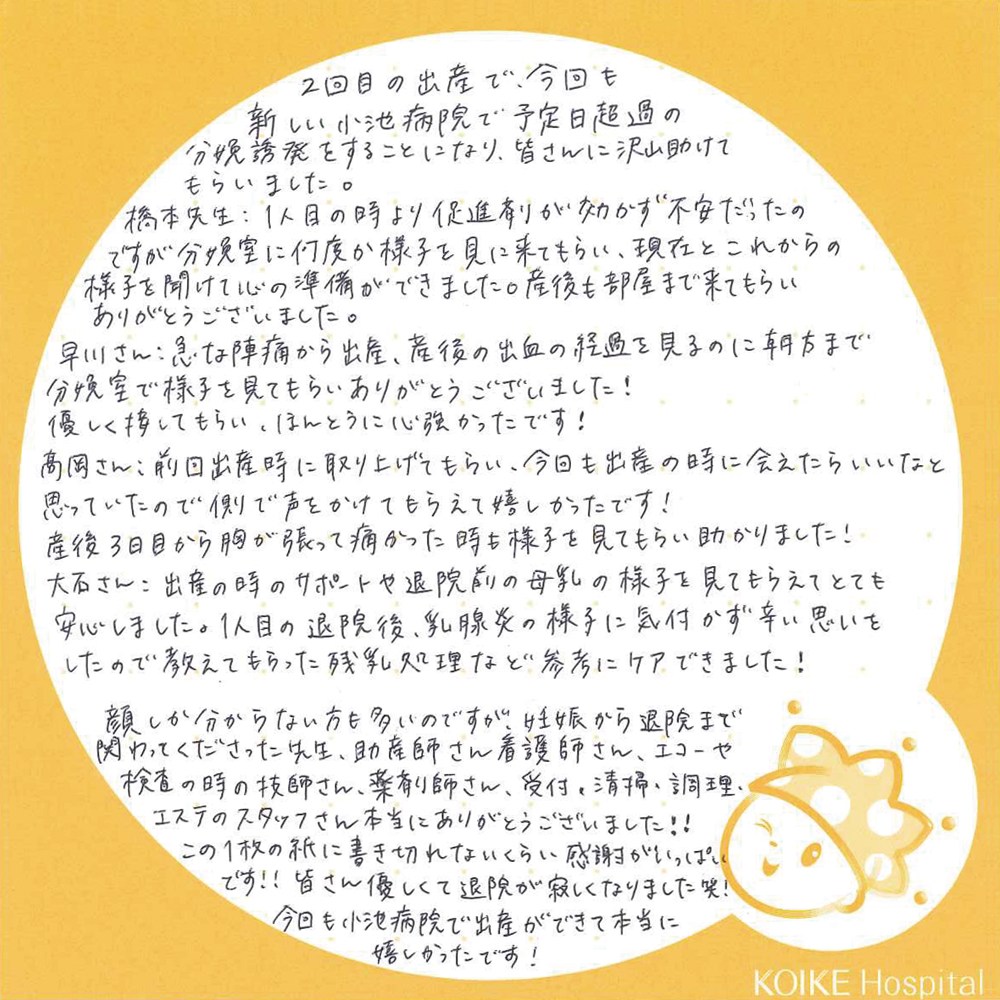 2回目の出産で、今回も
新しい小池病院で予定日超過の
分娩誘発をすることになり、皆さんに沢山助けて
もらいました。
橋本先生：1人目の時より促進剤が効かず不安だったの
ですが分娩室に何度か様子を見に来てもらい、現在とこれからの
様子を聞けて心の準備ができました。産後も部屋まで来てもらい
ありがとうございました。
早川さん：急な陣痛から出産、産後の出血の経過を見るのに朝方まで
分娩室で様子を見てもらいありがとうございました！
優しく接してもらい、ほんとうに心強かったです！
高岡さん：前回出産時に取り上げてもらい、今回も出産の時に会えたらいいなと
思っていたので側で声をかけてもらえて嬉しかったです！
産後3日目から胸が張って痛かった時も様子を見てもらい助かりました！
大石さん：出産の時のサポートや退院前の母乳の様子を見てもらえてとても
安心しました。1人目の退院後、乳腺炎の様子に気付かず辛い思いを
したので教えてもらった残乳処理など参考にケアできました！
顔しか分からない方も多いのですが、妊娠から退院まで
関わってくださった先生、助産師さん看護師さん、エコーや
検査の時の技師さん、薬剤師さん、受付・清掃・調理・
エステのスタッフさん本当にありがとうございました!!
この1枚の紙に書き切れないくらい感謝がいっぱい
です!! 皆さん優しくて退院が寂しくなりました笑!
今回も小池病院で出産ができて本当に
嬉しかったです！
KOIKE Hospital